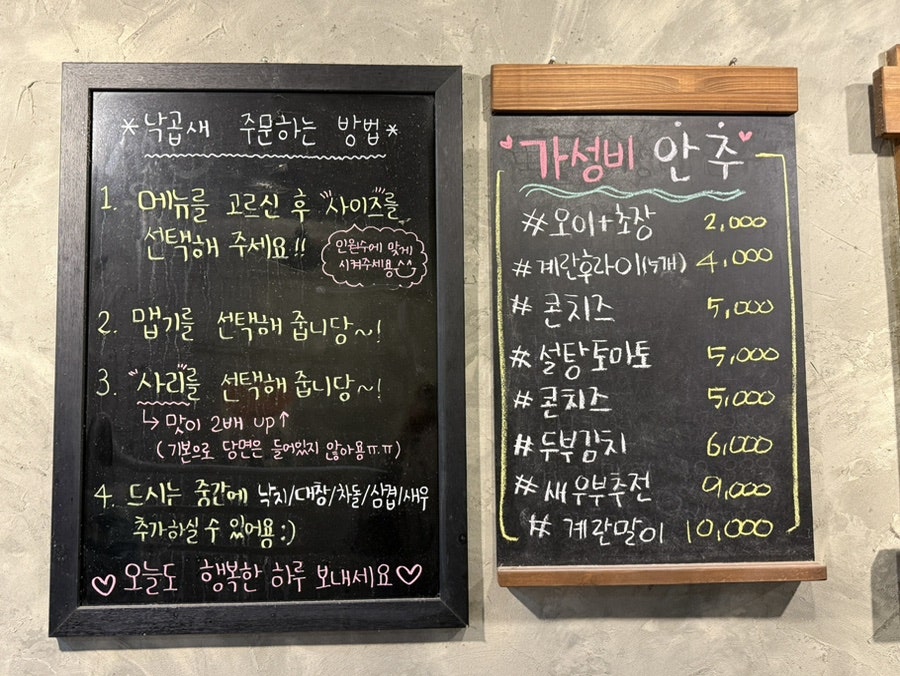 *낙곱새 주문하는 방법*
1. 메뉴를 고르신 후 "사이즈"를
선택해 주세요!!
인원수에 맞게
시켜주세용^^
2. 맵기를 선택해 줍니당~!
3. "사리"를 선택해 줍니당~!
↳ 맛이 2배 up↑
(기본으로 당면은 들어있지 않아용ㅠ.ㅠ)
4. 드시는 중간에 낙지/대창/차돌/삼겹/새우
추가하실 수 있어용:)
♡오늘도 행복한 하루 보내세요♡
♥가성비 안주♥
#오이+초장 2,000
#계란후라이(4개) 4,000
#콘치즈 5,000
#설탕토마토 5,000
#콘치즈 5,000
#두부김치 6,000
#새우부추전 9,000
#계란말이 10,000